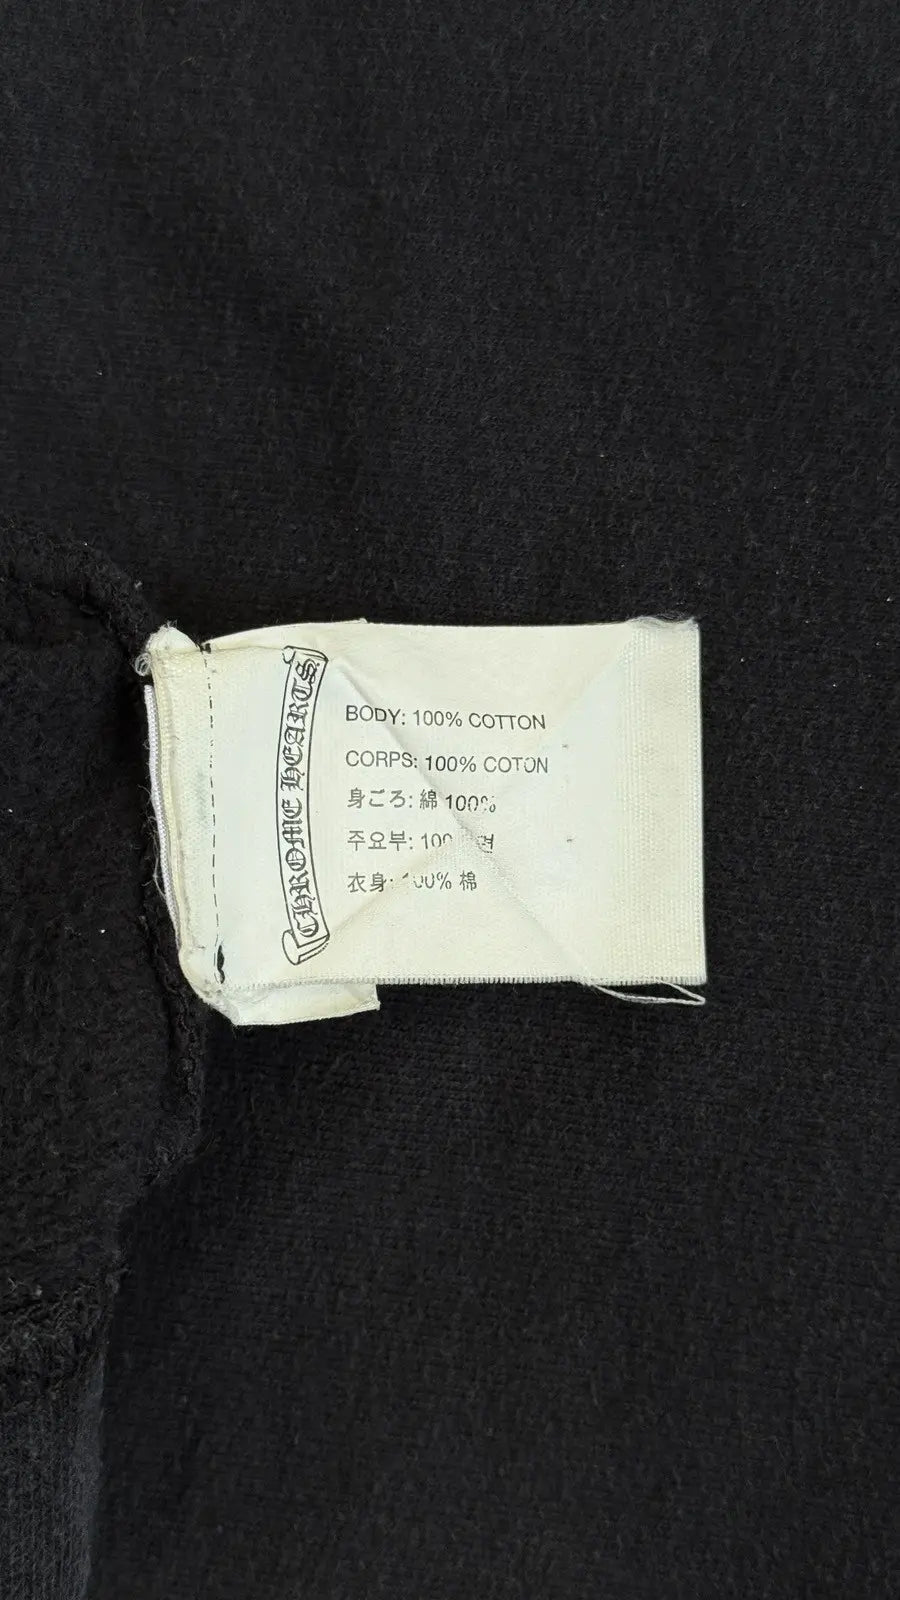 CHROME HEARTS
BODY: 100% COTTON
CORPS: 100% COTON
身ごろ: 綿 100%
주요부:
衣身: 100% 棉